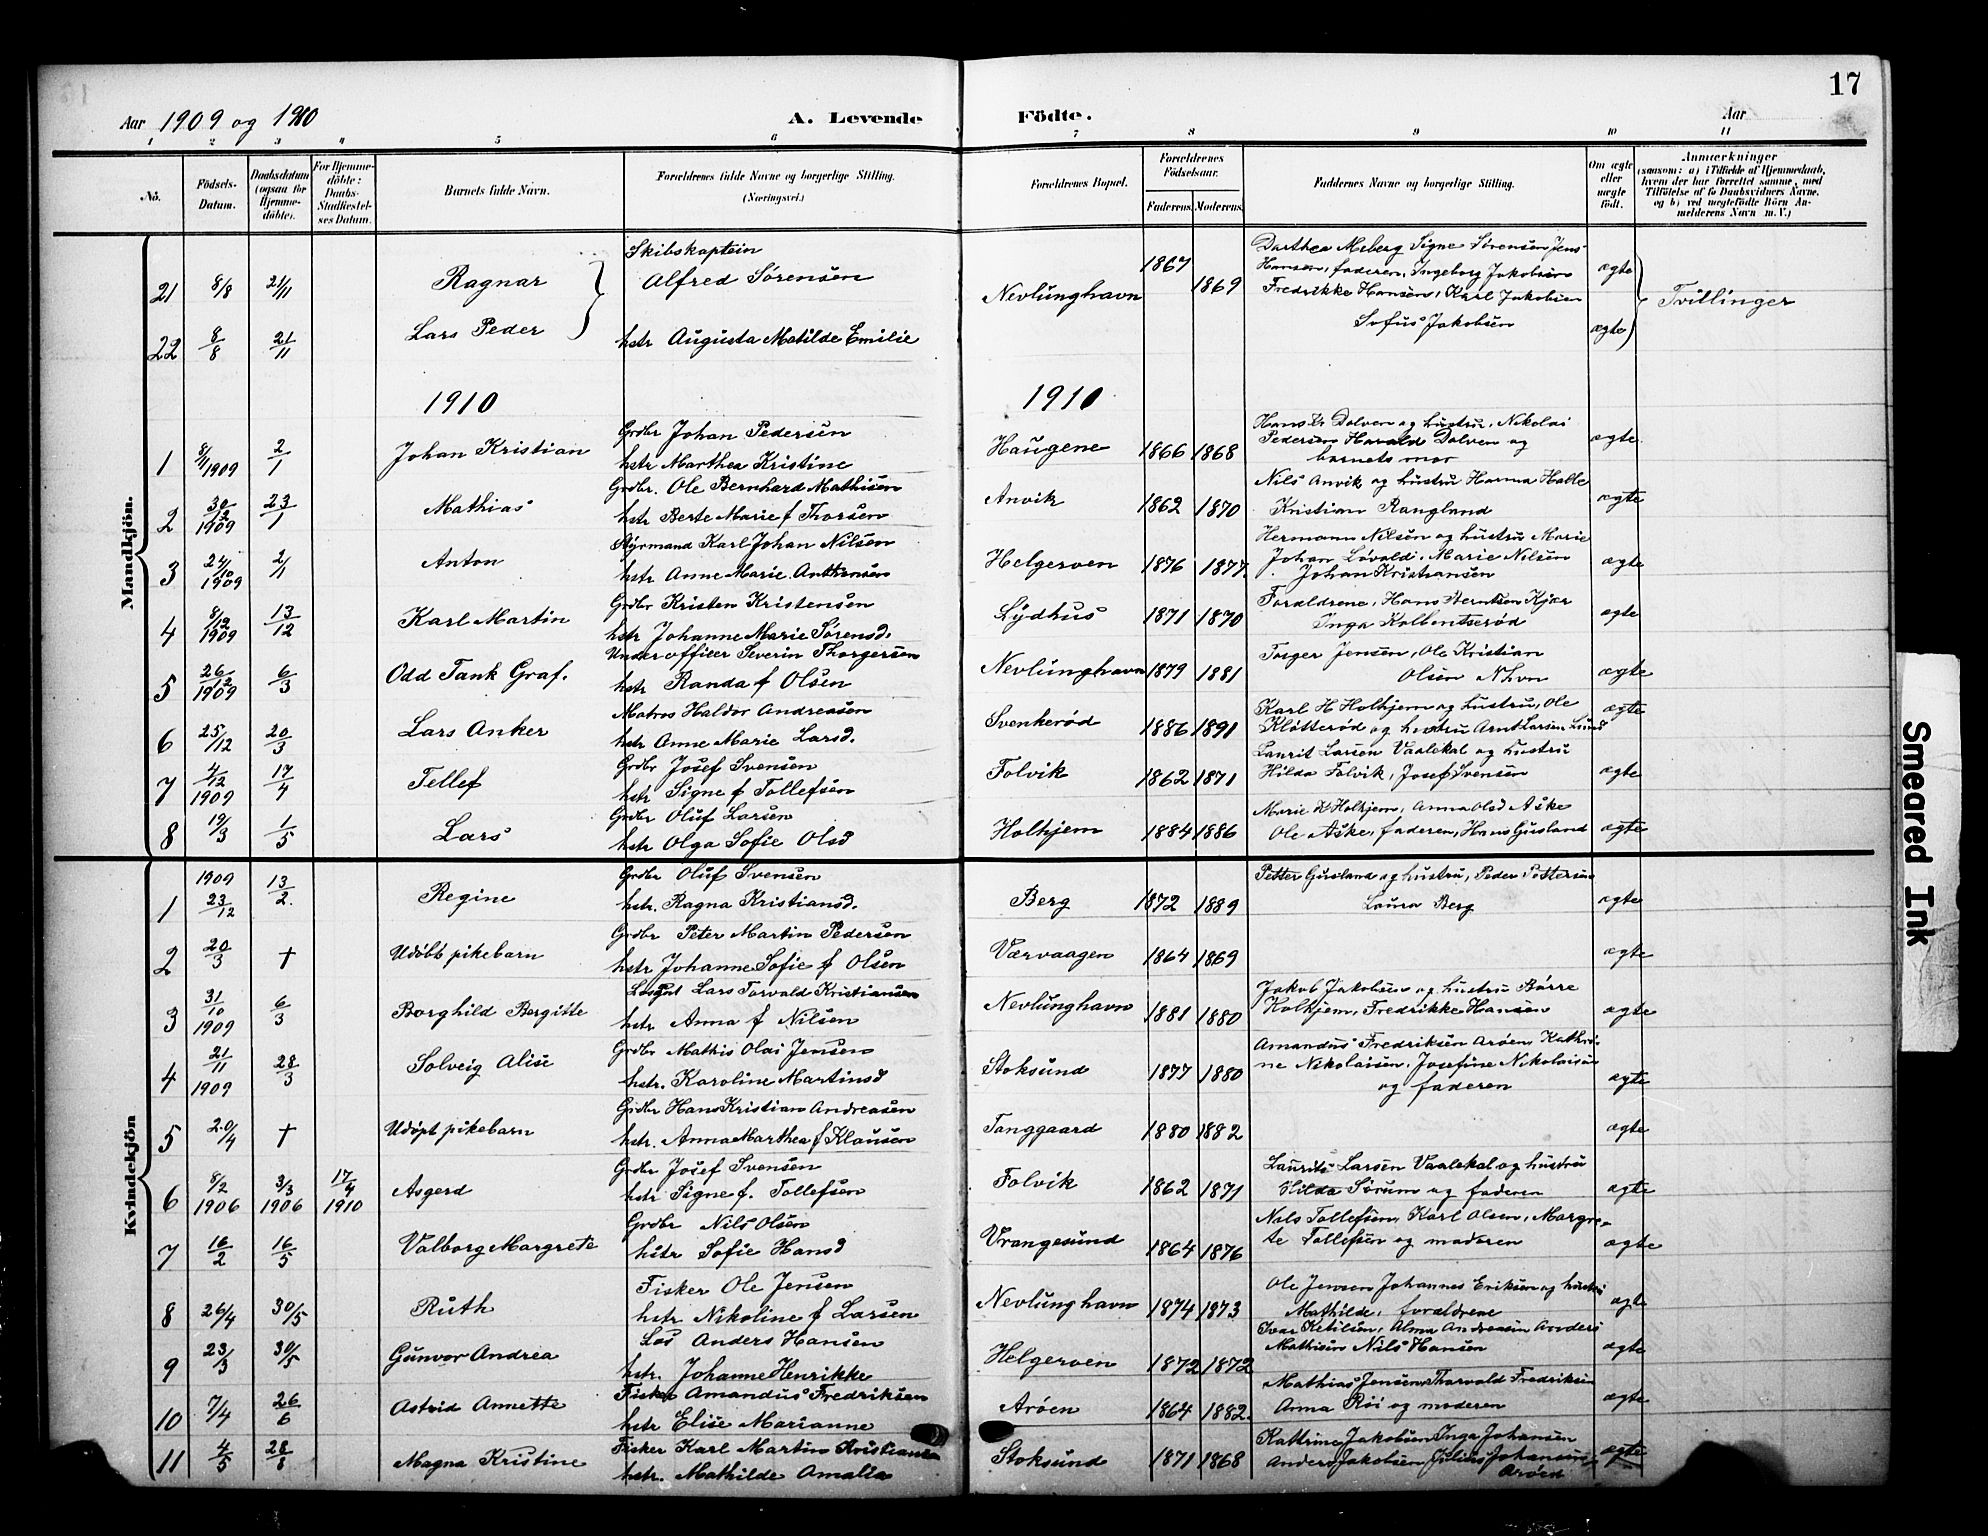 17
Aar 1909 og 1910 A. Levende Födte. Aar
1 2 3 4 5 6 7 8 9 10 11
No. Födsels-Datum. Daabsdatum (ogsaa for Hjemme-döbte). For Hjemme-döbte: Daabs-Stadfæstel-ses Datum. Barnets fulde Navn. Forældrenes fulde Navne og borgerlige Stilling. (Næringsvei.) Forældrenes Bopæl. Forældrenes Födselsaar. Faderens. Moderens. Faddernes Navne og borgerlige Stilling. Om ægte eller uægte födt. Anmærkninger (saasom: a) i Tilfælde af Hjemmedaab, hvem der har forrettet samme, med Tilföielse af to Daabsvidners Navne. og b) ved uægtefödte Börn An-melderens Navn m. V.)
Mandkjön.
Skibskaptein Darthea Meberg Signe Sørensen Jens
21 8/8 21/11 Ragnar Alfred Sørensen Nevlunghavn 1867 1869 Hansen, faderen, Ingeborg Jakobsen ægte
Fredrikke Hansen, Karl Jakobsen Tvillinger
22 8/8 21/11 Lars Peder hstr Augusta Matilde Emilie Sofus Jakobsen ægte
1910 1910
Grdbr Johan Pedersen Hans Kr Dolven og hustru, Nikolai
1 8/11 1909 2/1 Johan Kristian hstr Marthea Kristine Haugene 1866 1868 Pedersen Harald Dolven og ægte
barnets mor
Grdbr. Ole Bernhard Mathisen Nils Anvik og hustru Hanna Halle
2 30/12 1909 23/1 Mathias hstr Berte Marie f Thorsen Anvik 1862 1870 Kristian Rangland ægte
Styrmand Karl Johan Nilsen Hermann Nilsen og hustru Marie
3 24/10 1909 2/1 Anton hstr Anne Marie Anthonsen Helgerven 1876 1877 Johan Løvaldi, Marie Nilsen ægte
Johan Kristiansen
Grdbr Kristen Kristensen Forældrene, Hans Berntsen Kjær
4 8/12 1909 13/12 Karl Martin hstr Johanne Marie Sørensd. Lydhus 1871 1870 Inga Kolbentserød ægte
Underofficer Severin Thorgersen Torger Jensen, Ole Kristian
5 26/12 1909 6/3 Odd Tank Graf. hstr Randa f Olsen Nevlunghavn 1879 1881 Olsen N.hvn ægte
Matros Haldor Andreasen Karl H Holhjem og hustru, Ole
6 25/12 20/3 Lars Anker hstr Anne Marie Larsd. Svenkerød 1886 1891 Kløtterød og hustru Arnt Larsen Lund ægte
Grdbr Josef Svensen Laurit Larsen Vaalekal og hustru
7 4/12 1909 17/4 Tellef hstr Signe f Tollefsen Folvik 1862 1871 Hilda Folvik, Josef Svensen ægte
Grdbr Oluf Larsen Marie H Holhjem, Anna Olsd Aske
8 19/3 1/5 Lars hstr Olga Sofie Olsd Holhjem 1884 1886 Ole Aske, faderen, Hans Gusland ægte
Kvindekjön
Grdbr Oluf Svensen Petter Gusland og hustru, Peder Pettersen
1 1909 23/12 13/2 Regine hstr. Ragna Kristiansd. Berg 1872 1889 Laura Berg ægte
Grdbr Peter Martin Pedersen
2 20/3 † Udøbt pikebarn hstr Johanne Sofie f Olsen Værvaagen 1864 1869 ægte
Losgut Lars Torvald Kristiansen Jakob Jakobsen og hustru Børre
3 31/10 1909 6/3 Borghild Bergitte hstr Anna f Nilsen Nevlunghavn 1881 1880 Holhjem, Fredrikke Hansen ægte
Grdbr Mathis Olai Jensen Amandus Fredriksen Arøen, Kathri-
4 21/11 1909 28/3 Solveig Alise hstr. Karoline Martinsd Stoksund 1877 1880 ne Nikolaisen, Josefine Nikolaisen ægte
og faderen
Grdbr Hans Kristian Andreasen
5 20/4 † Udøpt pikebarn hstr. Anna Marthea f Klausen Tanggaard 1880 1882 ægte
Grdbr Josef Svensen Laurits Larsen Vaalekal og hustru
6 8/2 1906 3/3 1906 17/4 1910 Asgerd hstr Signe f. Tollefsen Folvik 1862 1871 Hilda Sørum og faderen ægte
Grdbr Nils Olsen Nils Tollefsen, Karl Olsen, Margre-
7 16/2 16/5 Valborg Margrete hstr Sofie Hansd Vrangesund 1864 1876 te Tollefsen og moderen ægte
Fisker Ole Jensen Ole Jensen Johannes Eriksen og hustru
8 26/4 30/5 Ruth hstr Nikoline f Larsen Nevlunghavn 1874 1873 Mathilde, forældrene ægte
Los Anders Hansen Ivar Ketilsen, Alma Andreasen Anders
9 23/3 30/5 Gunvor Andrea hstr. Johanne Henrikke Helgerven 1872 1872 Mathisen Nils Hansen ægte
Fisker Amandus Fredriksen Mathias Jensen, Thorvald Fredriksen
10 7/4 26/6 Astrid Annette hstr Elise Marianne Arøen 1864 1882. Anna Røi og moderen ægte
Fisker Karl Martin Kristiansen Kattrine Jakobsen Inga Johansen
11 4/5 28/8 Magna Kristine hstr. Mathilde Amalia Stoksund 1871 1868 Anders Jakobsen Julius Johansen, ægte
Arøen
Smeared Ink